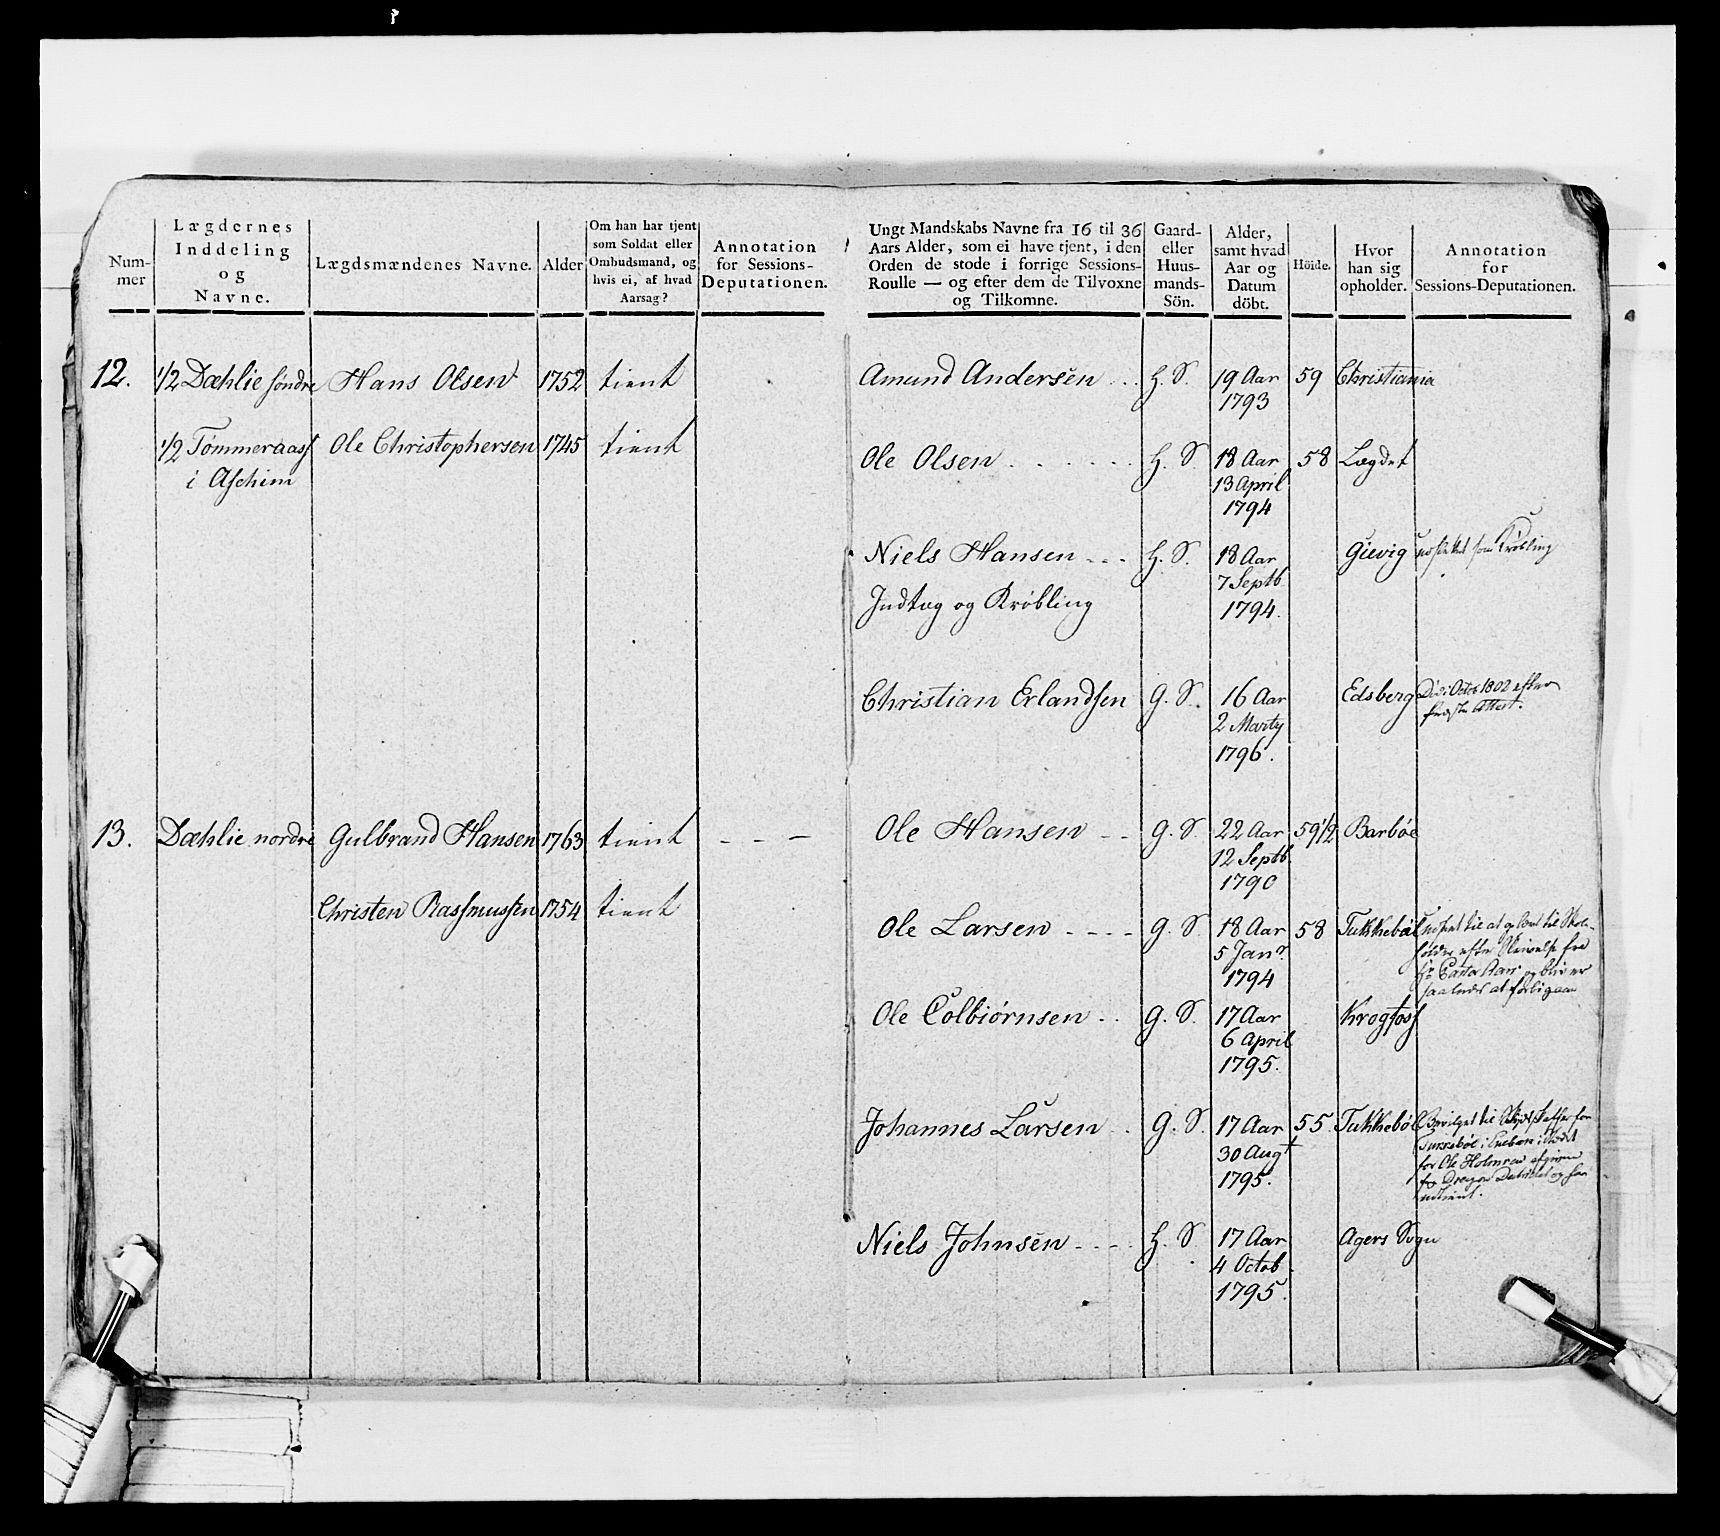 Nummer
Lægdernes
Inddeling
og
Navne.
Lægdsmændenes Navne.
Alder
Om han har tjent
som Soldat eller
Ombudsmand, og
hvis ei, af hvad
Aarsag?
Annotation
for Sessions-
Deputationen.
Ungt Mandskabs Navne fra 16 til 36
Aars Alder, som ei have tjent, i den
Orden de stode i forrige Sessions-
Roulle — og efter dem de Tilvoxne
og Tilkomne.
Gaard-
eller
Huus-
mands-
Sön.
Alder,
samt hvad
Aar og
Datum
döbt.
Höide.
Hvor
han sig
opholder.
Annotation
for
Sessions-Deputationen.
12. 1/2 Dæhlie søndre Hans Olsen 1752 tient
1/2 Tømmeraass Ole Christophersen 1745 tient
i Aschim
Amund Andersen . . . H. S. 19 Aar 59 Christiania
1793
Ole Olsen . . . . . . . H. S. 18 Aar 58 Lægdet
13 April
1794
Niels Hansen - - - H. S. 18 Aar Gievig som Krøbling
7 Septb
1794.
Indtag og Krøbling
Christian Erlandsen G. S. 16 Aar Edsberg Død i Octob 1802 efter
2 Marty Attest.
1796.
13. Dæhlie nordre Gulbrand Hansen 1763 tient - - -
Christen Rassmussen 1754 tient
Ole Hansen - - G. S. 22 Aar 59 1/2 Barbøe
12 Septb
1790
Ole Larsen - - - - G. S. 18 Aar 58 Tukkebøl
5 Janr
1794
Ole Colbiørnsen . . G. S. 17 Aar Krogfoss
6 April
1795.
Johannes Larsen . . G. S. 17 Aar 55 Tukkebøl
30 Augt
1795.
for Ole
Niels Johnsen - - - - H. S. 17 Aar Agers Sogn
4 Octob.
1795.